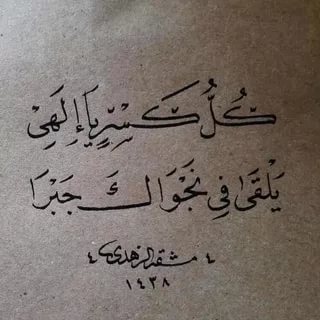 كُلُّ كَسْرٍ يَا إِلٰهِيْ
يَلْقَىٰ فِيْ نَجْوَاكَ جَبْرَا
مشقه الزهدي
١٤٣٨